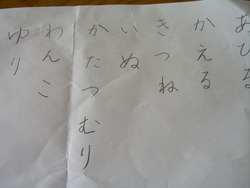 あひる
かえる
きつね
いぬ
かたつむり
わんこ
ゆり